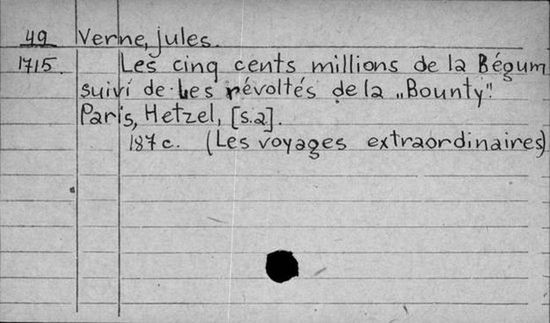 49 Verne, Jules.
1715. Les cinq cents millions de la Bégum
suivi de Les révoltés de la „Bounty".
Paris, Hetzel, [s.a].
187 c. (Les voyages extraordinaires)